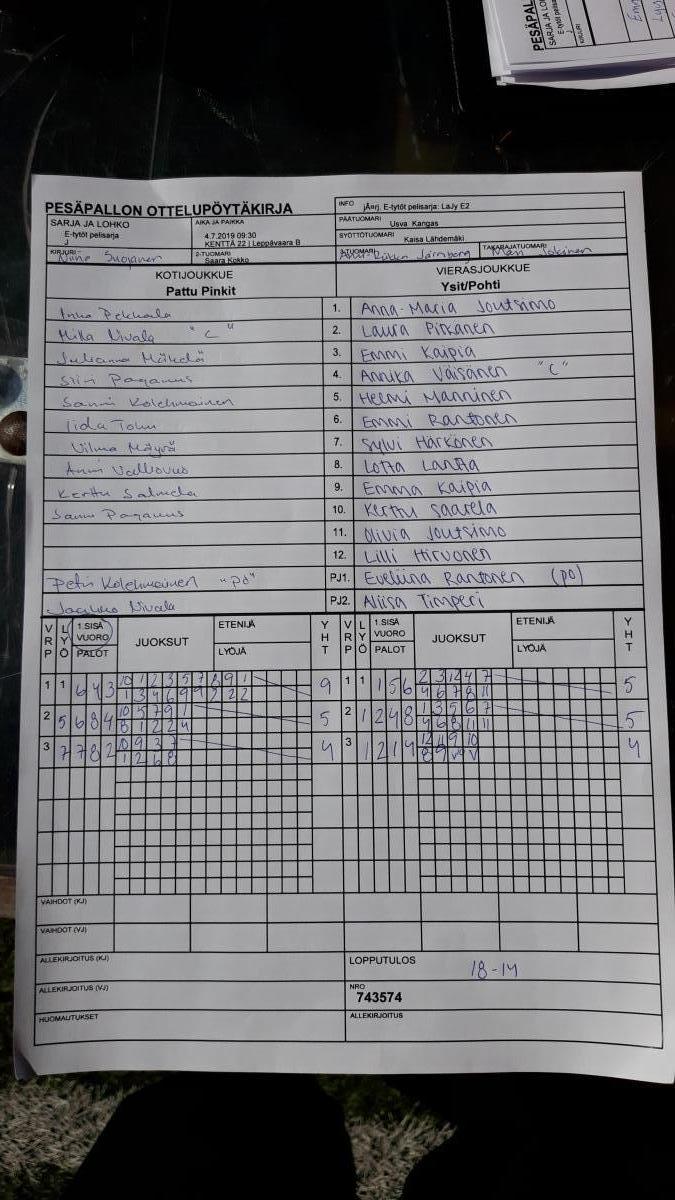 PESÄPALLON OTTELUPÖYTÄKIRJA
INFO jÄnrj. E-tytöt pelisarja: LaJy E2
SARJA JA LOHKO
E-tytöt pelisarja
J
AIKA JA PAIKKA
4.7.2019 09:30
KENTTÄ 22 | Leppävaara B
PÄÄTUOMARI Usva Kangas
SYÖTTÖTUOMARI Kaisa Lähdemäki
KIRJURI
2-TUOMARI
Saara Kokko
TAKARAJATUOMARI
KOTIJOUKKUE
Pattu Pinkit
VIERASJOUKKUE
Ysit/Pohti
Inka Pekkala 1. Anna-Maria Joutsimo
Milka Nivala "C" 2. Laura Pirkanen
Julianna Mäkelä 3. Emmi Kaipia
Siiri Paganus 4. Annika Väisänen "C"
Sanni Kolehmainen 5. Helmi Manninen
Iida 6. Emmi Rantonen
Vilma Mäyrä 7. Sylvi Härkönen
Anni 8. Lotta Lantta
Kerttu Salmela 9. Emma Kaipia
Sanni Paganus 10. Kerttu Saarela
11. Olivia Joutsimo
12. Lilli Hirvonen
Petri Kolehmainen "po" PJ1. Eveliina Rantonen (po)
Nivala PJ2. Aliisa Timperi
VRP LYÖ 1.SISÄ VUORO PALOT JUOKSUT ETENIJÄ LYÖJÄ YHT VRP LYÖ 1.SISÄ VUORO PALOT JUOKSUT ETENIJÄ LYÖJÄ YHT
1 1 6 4 3 10 1 2 3 5 7 8 9 1 9 1 1 1 5 6 2 3 12 4 7 5
1 3 4 6 9 9 2 2 2 4 6 7 8 11
2 5 6 8 4 10 5 7 9 1 5 2 1 2 4 8 1 3 5 6 7 5
8 1 2 2 4 4 6 8 11 11
3 7 7 8 2 10 9 3 7 4 3 1 2 1 4 12 11 9 10 4
1 2 6 8 8 9
VAIHDOT (KJ)
VAIHDOT (VJ)
ALLEKIRJOITUS (KJ)
LOPPUTULOS 18-14
ALLEKIRJOITUS (VJ)
NRO
743574
HUOMAUTUKSET
ALLEKIRJOITUS
PESÄPAL
SARJA JA LOH
E-tytöt pel
J
KIRJURI